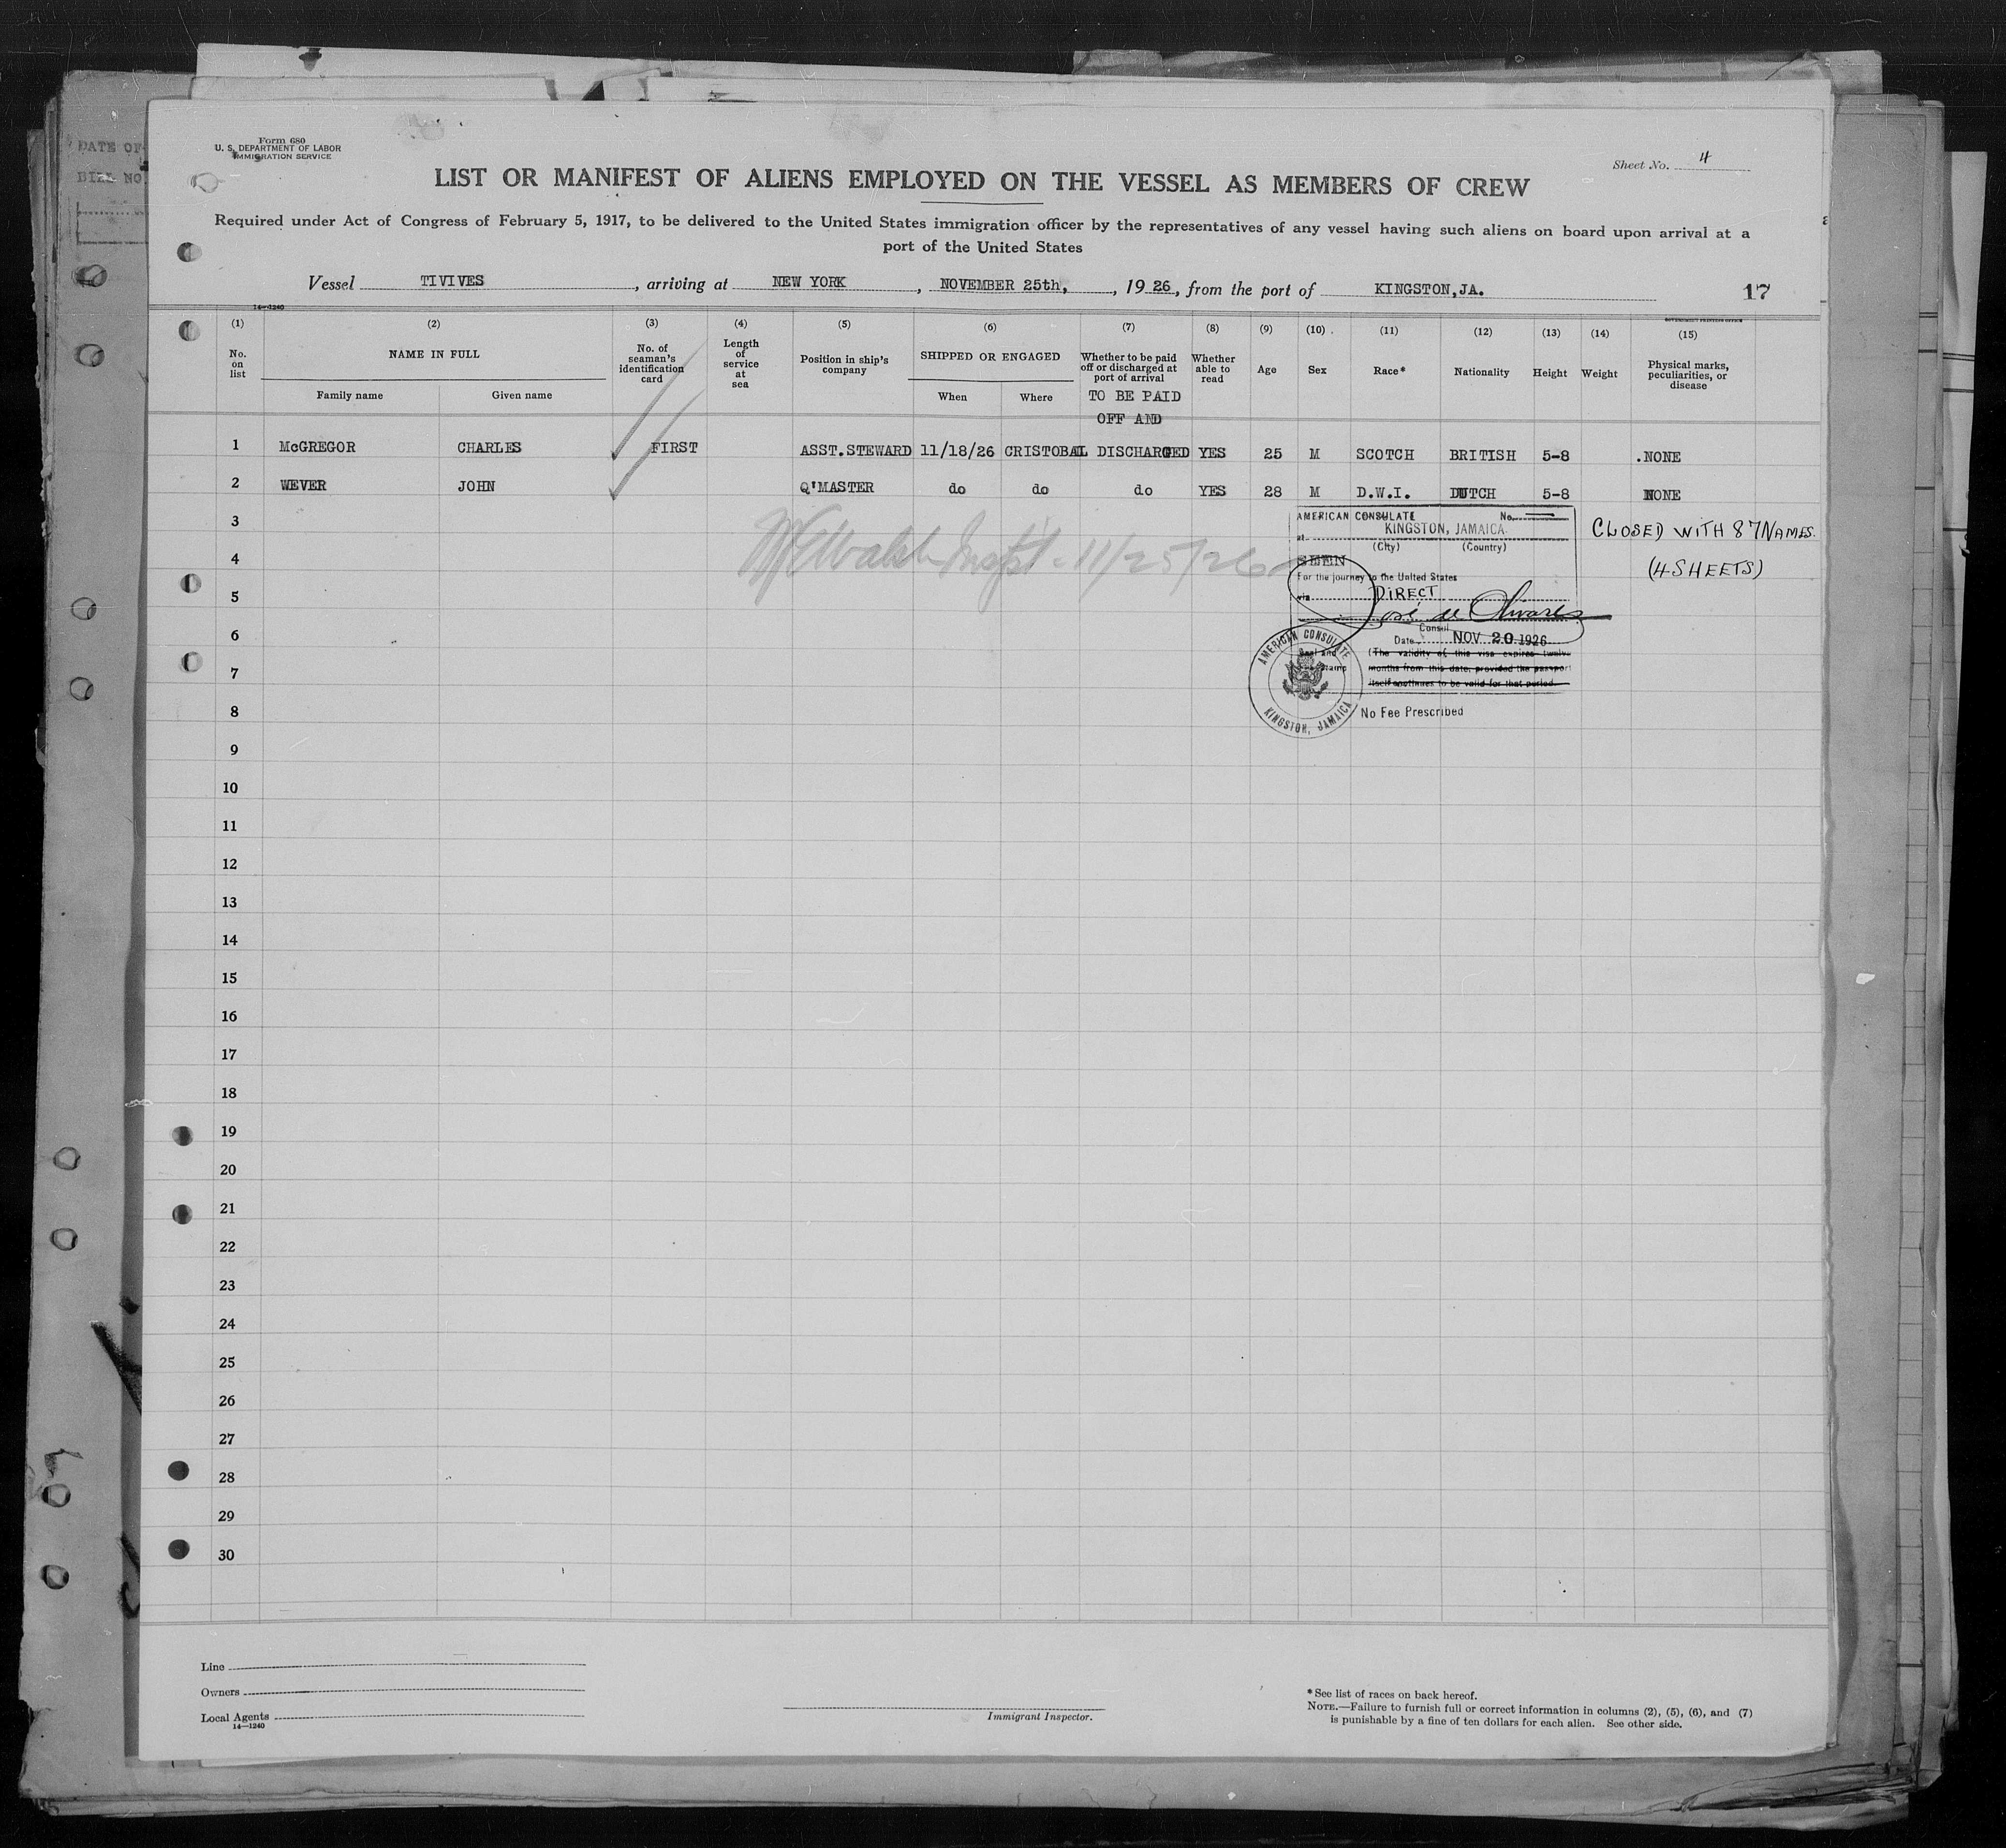 DATE OF
BILL NO.
Form 680
U. S. DEPARTMENT OF LABOR
IMMIGRATION SERVICE
Sheet No. 4
LIST OR MANIFEST OF ALIENS EMPLOYED ON THE VESSEL AS MEMBERS OF CREW
Required under Act of Congress of February 5, 1917, to be delivered to the United States immigration officer by the representatives of any vessel having such aliens on board upon arrival at a
port of the United States
Vessel TIVIVES, arriving at NEW YORK, NOVEMBER 25th, , 1926, from the port of KINGSTON,JA.
17
14—1240
GOVERNMENT PRINTING OFFICE
(1) (2) (3) (4) (5) (6) (7) (8) (9) (10) (11) (12) (13) (14) (15)
No. on list
NAME IN FULL
Family name
Given name
No. of seaman's identification card
Length of service at sea
Position in ship's company
SHIPPED OR ENGAGED
When
Where
Whether to be paid off or discharged at port of arrival
TO BE PAID
OFF AND
Whether able to read
Age
Sex
Race*
Nationality
Height
Weight
Physical marks, peculiarities, or disease
1 McGREGOR CHARLES FIRST ASST.STEWARD 11/18/26 CRISTOBAL DISCHARGED YES 25 M SCOTCH BRITISH 5-8 .NONE
2 WEVER JOHN Q'MASTER do do do YES 28 M D.W.I. DUTCH 5-8 NONE
3
4
5
6
7
8
9
10
11
12
13
14
15
16
17
18
19
20
21
22
23
24
25
26
27
28
29
30
Walsh Inspt - 11/25/26
AMERICAN CONSULATE No.
at KINGSTON, JAMAICA
(City) (Country)
SEEN
For the journey to the United States
via DIRECT
José de Olivares
Consul
Date NOV 20 1926
Seal and Stamp
(The validity of this visa expires twelve
months from this date, provided the passport
itself continues to be valid for that period.
No Fee Prescribed
AMERICAN CONSULATE
KINGSTON, JAMAICA
CLOSED WITH 87 NAMES.
(4 SHEETS)
Line
Owners
Local Agents
14—1240
Immigrant Inspector.
* See list of races on back hereof.
NOTE.—Failure to furnish full or correct information in columns (2), (5), (6), and (7)
is punishable by a fine of ten dollars for each alien. See other side.